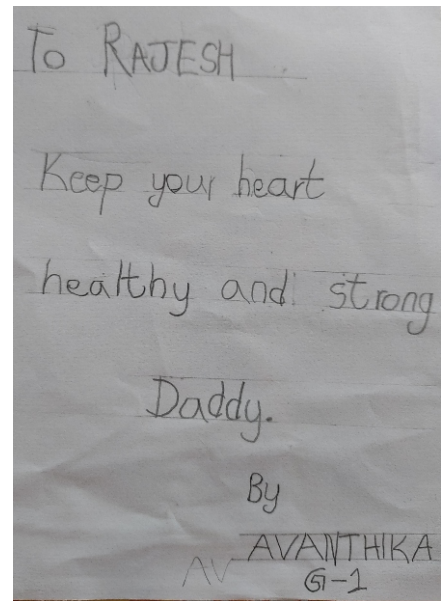 To RAJESH
Keep your heart
healthy and strong
Daddy.
By
AVANTHIKA
AV
G-1